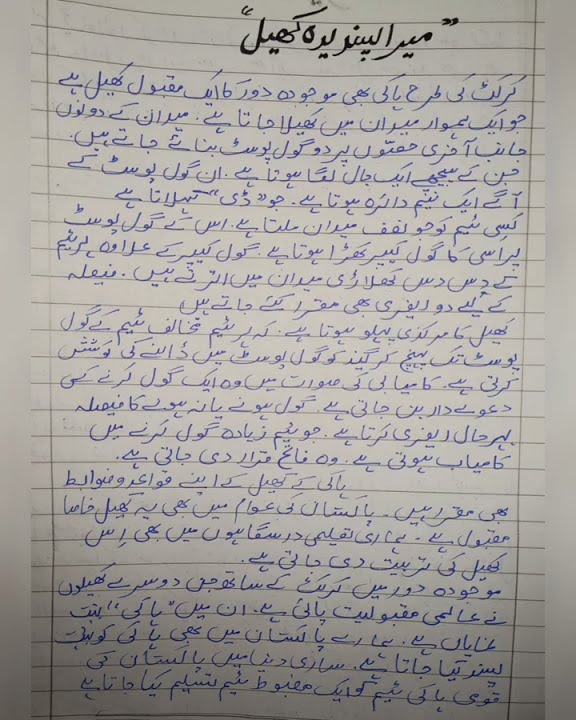 "میرا پسندیدہ کھیل"
کرکٹ کی طرح ہاکی بھی موجودہ دور کا ایک مقبول کھیل ہے
جو ایک ہموار میدان میں کھیلا جاتا ہے۔ میدان کے دونوں
جانب آخری حصّوں پر دو گول پوسٹ بنائے جاتے ہیں۔
جن کے پیچھے ایک جال لگا ہوتا ہے۔ ان گول پوسٹ کے
آگے ایک نیم دائرہ ہوتا ہے۔ جو "ڈی" کہلاتا ہے
کسی ٹیم کو جو نصف میدان ملتا ہے۔ اس کے گول پوسٹ
پر اسی کا گول کیپر کھڑا ہوتا ہے۔ گول کیپر کے علاوہ ہر ٹیم
کے دس دس کھلاڑی میدان میں اترتے ہیں۔ فیصلہ
کے لیے دو ریفری بھی مقرر کئے جاتے ہیں
کھیل کا مرکزی پہلو ہوتا ہے۔ کہ ہر ٹیم مخالف ٹیم کے گول
پوسٹ تک پہنچ کر گیند کو گول پوسٹ میں ڈالنے کی کوشش
کرتی ہے۔ کامیابی کی صورت میں وہ ایک گول کرنے کی
دعوے دار بن جاتی ہے۔ گول ہونے یا نہ ہونے کا فیصلہ
بہرحال ریفری کرتا ہے۔ جو ٹیم زیادہ گول کرنے میں
کامیاب ہوتی ہے۔ وہ فاتح قرار دی جاتی ہے۔
ہاکی کے کھیل کے اپنے قواعد و ضوابط
بھی مقرر ہیں۔ پاکستان کی عوام میں بھی یہ کھیل خاصا
مقبول ہے۔ ہماری تعلیمی درسگاہوں میں بھی اِس
کھیل کی تربیت دی جاتی ہے۔
موجودہ دور میں کرکٹ کے ساتھ جن دوسرے کھیلوں
نے عالمی مقبولیت پائی ہے۔ ان میں "ہاکی" بہت
نمایاں ہے۔ ہمارے پاکستان میں بھی ہاکی کو بہت
پسند کیا جاتا ہے۔ ساری دنیا میں پاکستان کی
قومی ہاکی ٹیم کو ایک مضبوط ٹیم تسلیم کیا جاتا ہے